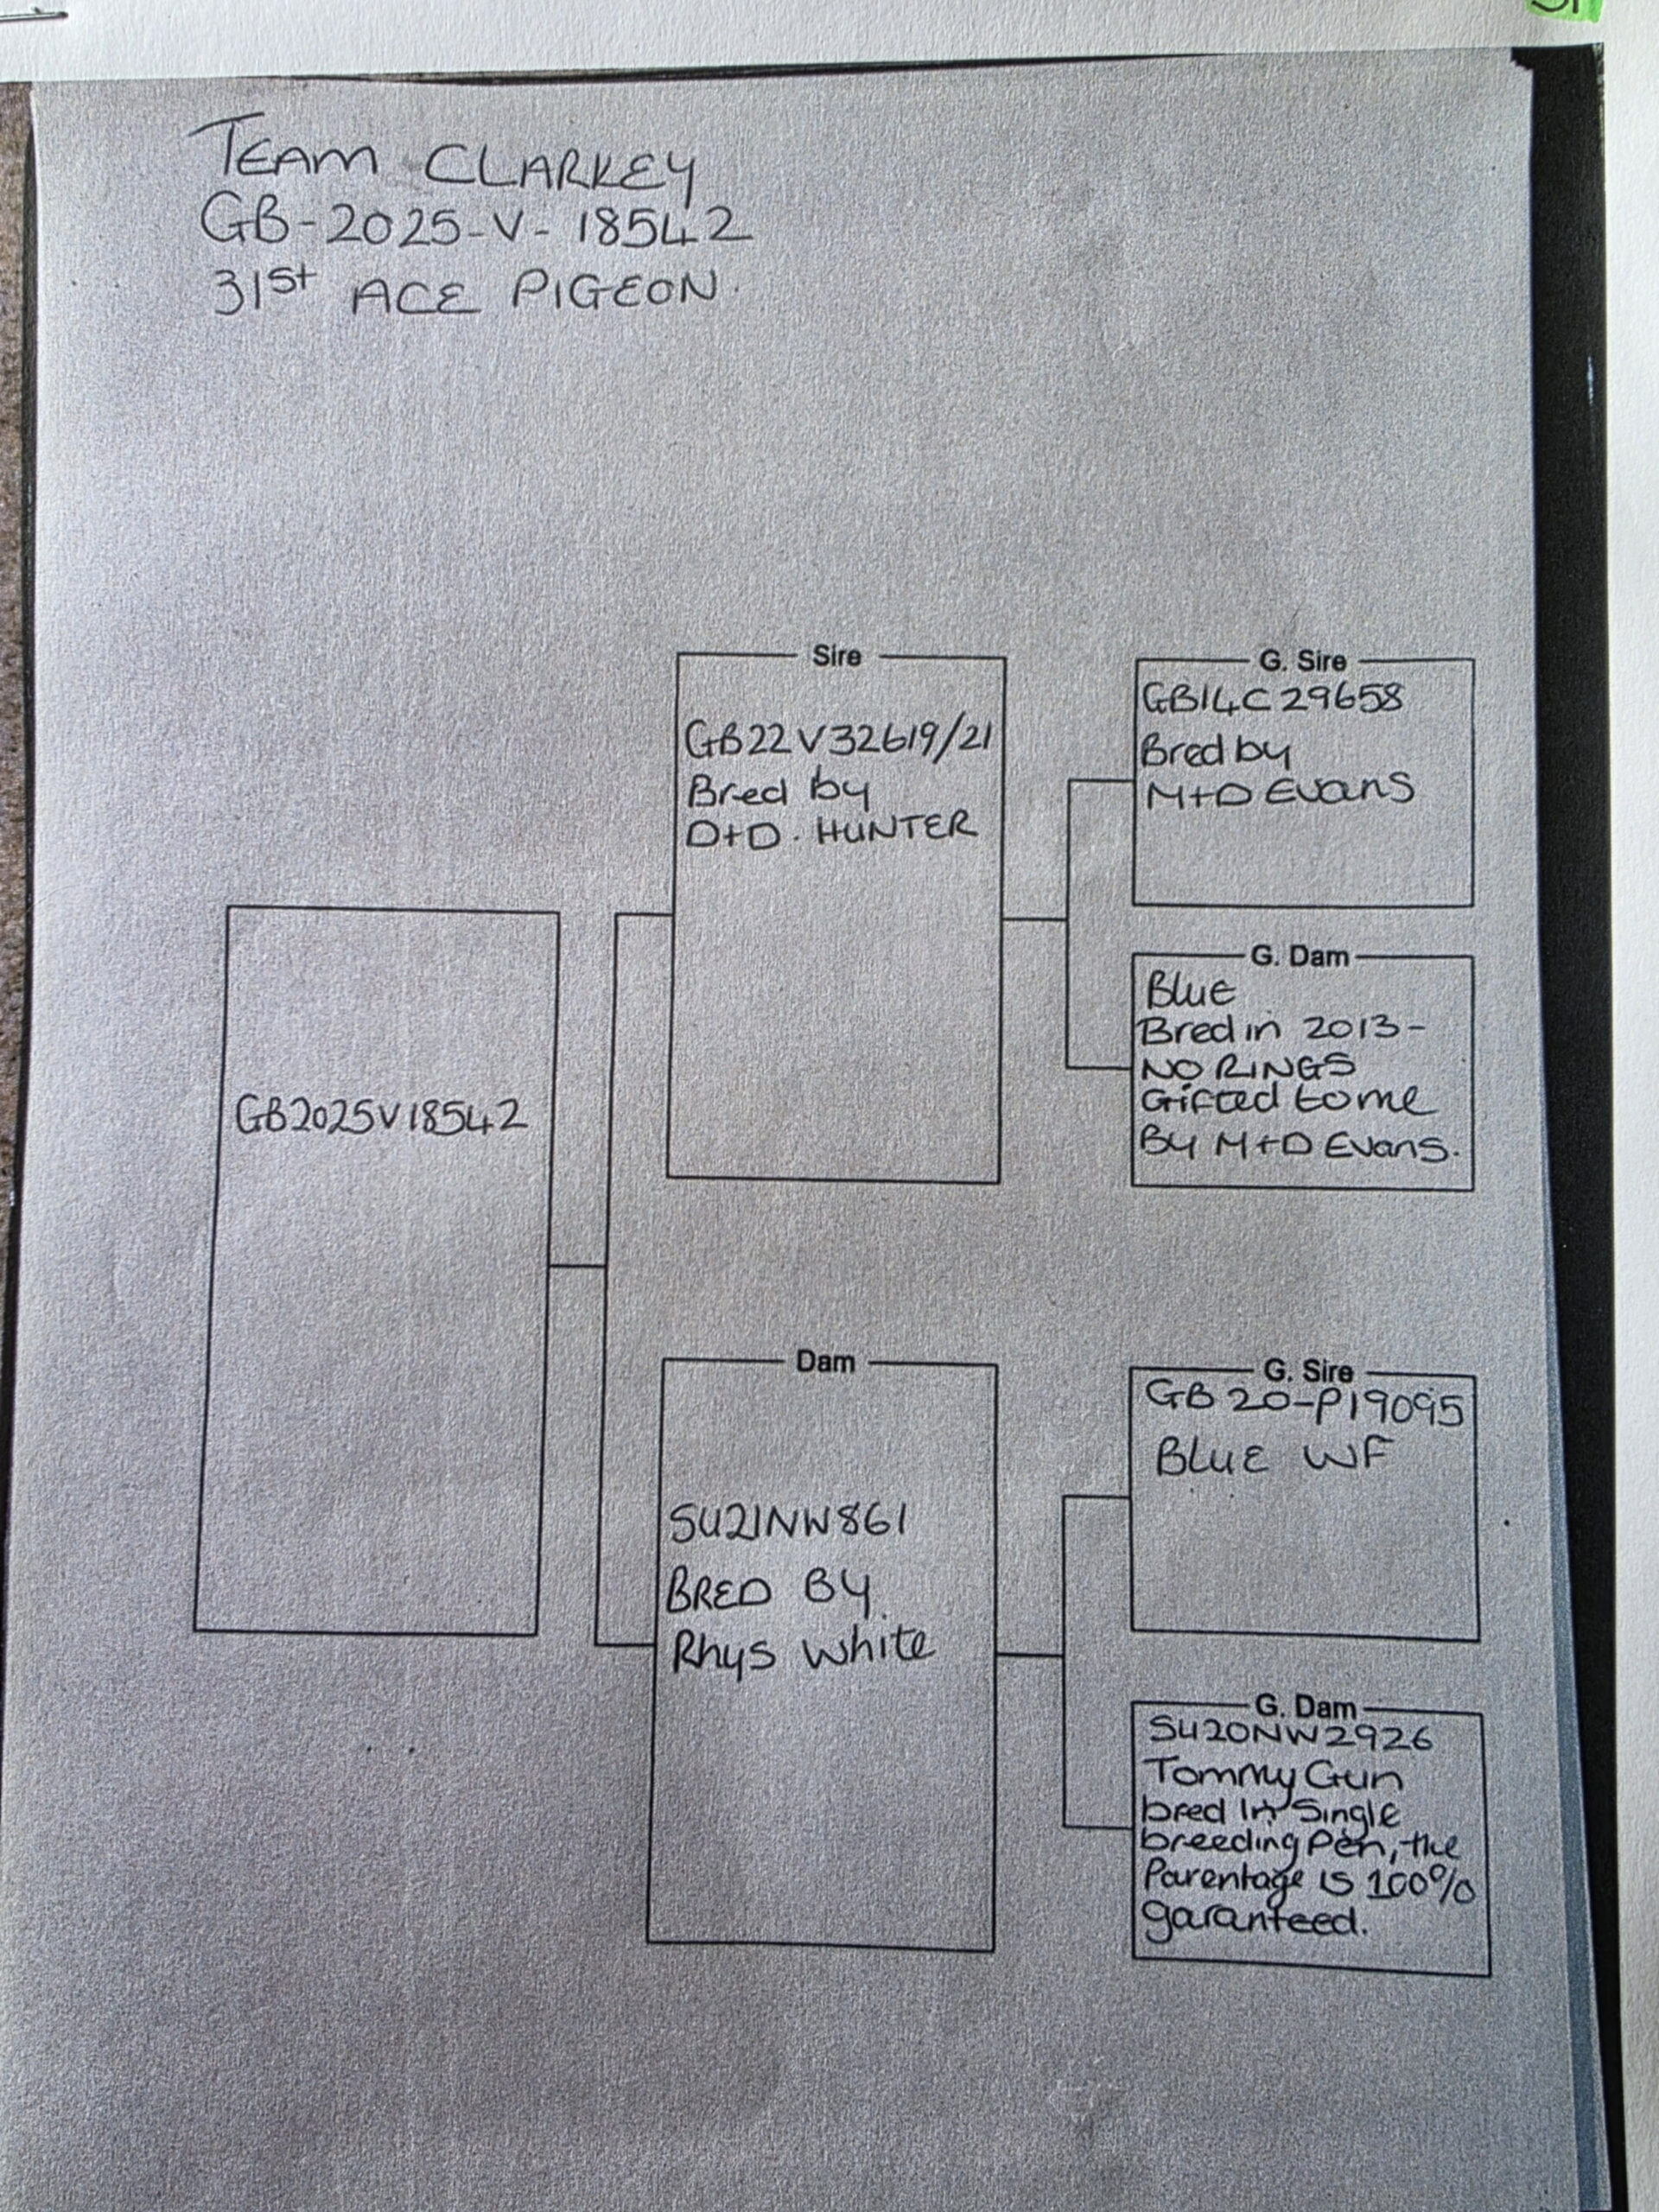 TEAM CLARKEY
GB-2025-V-18542
31st ACE PIGEON.
Sire
GB22V32619/21
Bred by
D+D. HUNTER
G. Sire
GB14C29658
Bred by
M+D Evans
G. Dam
Blue
Bred in 2013-
NO RINGS
Gifted to me
By M+D Evans.
GB2025V18542
Dam
SU21NW861
BRED BY
Rhys White
G. Sire
GB20-P19095
BLUE WF
G. Dam
SU20NW2926
Tommy Gun
bred In Single
breeding Pen, the
Parentage is 100%
garanteed.